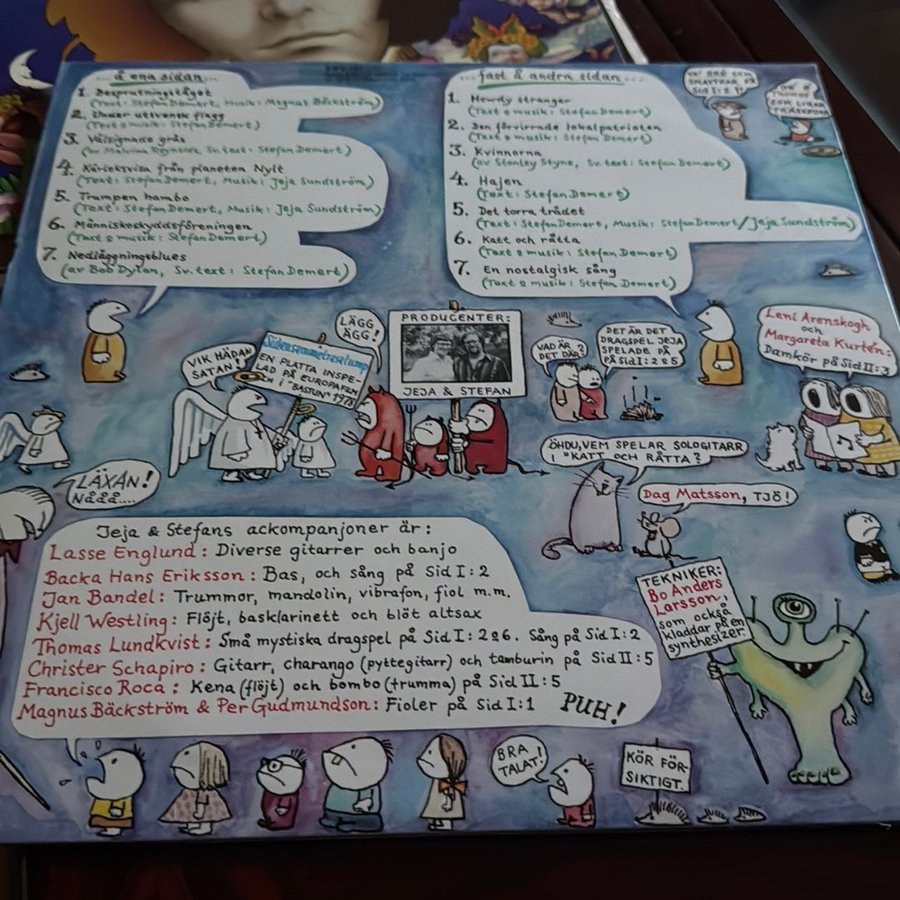 ...å ena sidan...
1. Besprutningståget
(Text: Stefan Demert, Musik: Magnus Bäckström)
2. Under utsvensk flagg
(Text & musik: Stefan Demert)
3. Välsignade gräs
(av Malvina Reynolds, Sv. text: Stefan Demert)
4. Kärleksvisa från planeten Nylt
(Text: Stefan Demert, Musik: Jeja Sundström)
5. Trampen hambo
(Text: Stefan Demert, Musik: Jeja Sundström)
6. Människoskyddsföreningen
(Text & musik: Stefan Demert)
7. Nedläggningsblues
(av Bob Dylan, Sv. text: Stefan Demert)
...fast å andra sidan...
1. Howdy stranger
(Text & musik: Stefan Demert)
2. Den förvirrade lokalpatrioten
(Text & musik: Stefan Demert)
3. Kvinnorna
(av Stanley Styne, Sv. text: Stefan Demert)
4. Hajen
(Text: Stefan Demert)
5. Det torra trädet
(Text: Stefan Demert, Musik: Stefan Demert/Jeja Sundström)
6. Katt och råtta
(Text & musik: Stefan Demert)
7. En nostalgisk sång
(Text & musik: Stefan Demert)
SID I: 2?
THOMAS
SOM LIRAR
LÄGG
ÄGG!
VIK HÄDAN
SATAN!
EN PLATTA INSPE-
LAD PÅ EUROPAFILM
OCH I "BASTUN" 1978
PRODUCENTER:
JEJA & STEFAN
VAD ÄR
DET DÄR?
DET ÄR DET
DRAGSPEL JEJA
SPELADE PÅ
PÅ SID I: 2 & 5
Leni Arenskogh
och
Margareta Kurtén:
Damkör på Sid II: 3
ÖHDU, VEM SPELAR SOLOGITARR
I "KATT OCH RÅTTA?
Dag Matsson, TJÖ!
LÄXAN!
NÅÅÅ....
Jeja & Stefans ackompanjoner är:
Lasse Englund: Diverse gitarrer och banjo
Backa Hans Eriksson: Bas, och sång på Sid I: 2
Jan Bandel: Trummor, mandolin, vibrafon, fiol m.m.
Kjell Westling: Flöjt, basklarinett och blöt altsax
Thomas Lundkvist: Små mystiska dragspel på Sid I: 2&6. Sång på Sid I: 2
Christer Schapiro: Gitarr, charango (pyttegitarr) och tamburin på Sid II: 5
Francisco Roca: Kena (flöjt) och bombo (trumma) på Sid II: 5
Magnus Bäckström & Per Gudmundson: Fioler på Sid I: 1
PUH!
TEKNIKER:
Bo Anders
Larsson,
som också
kladdar på en
synthesizer.
BRA
TALAT!
KÖR FÖR-
SIKTIGT.